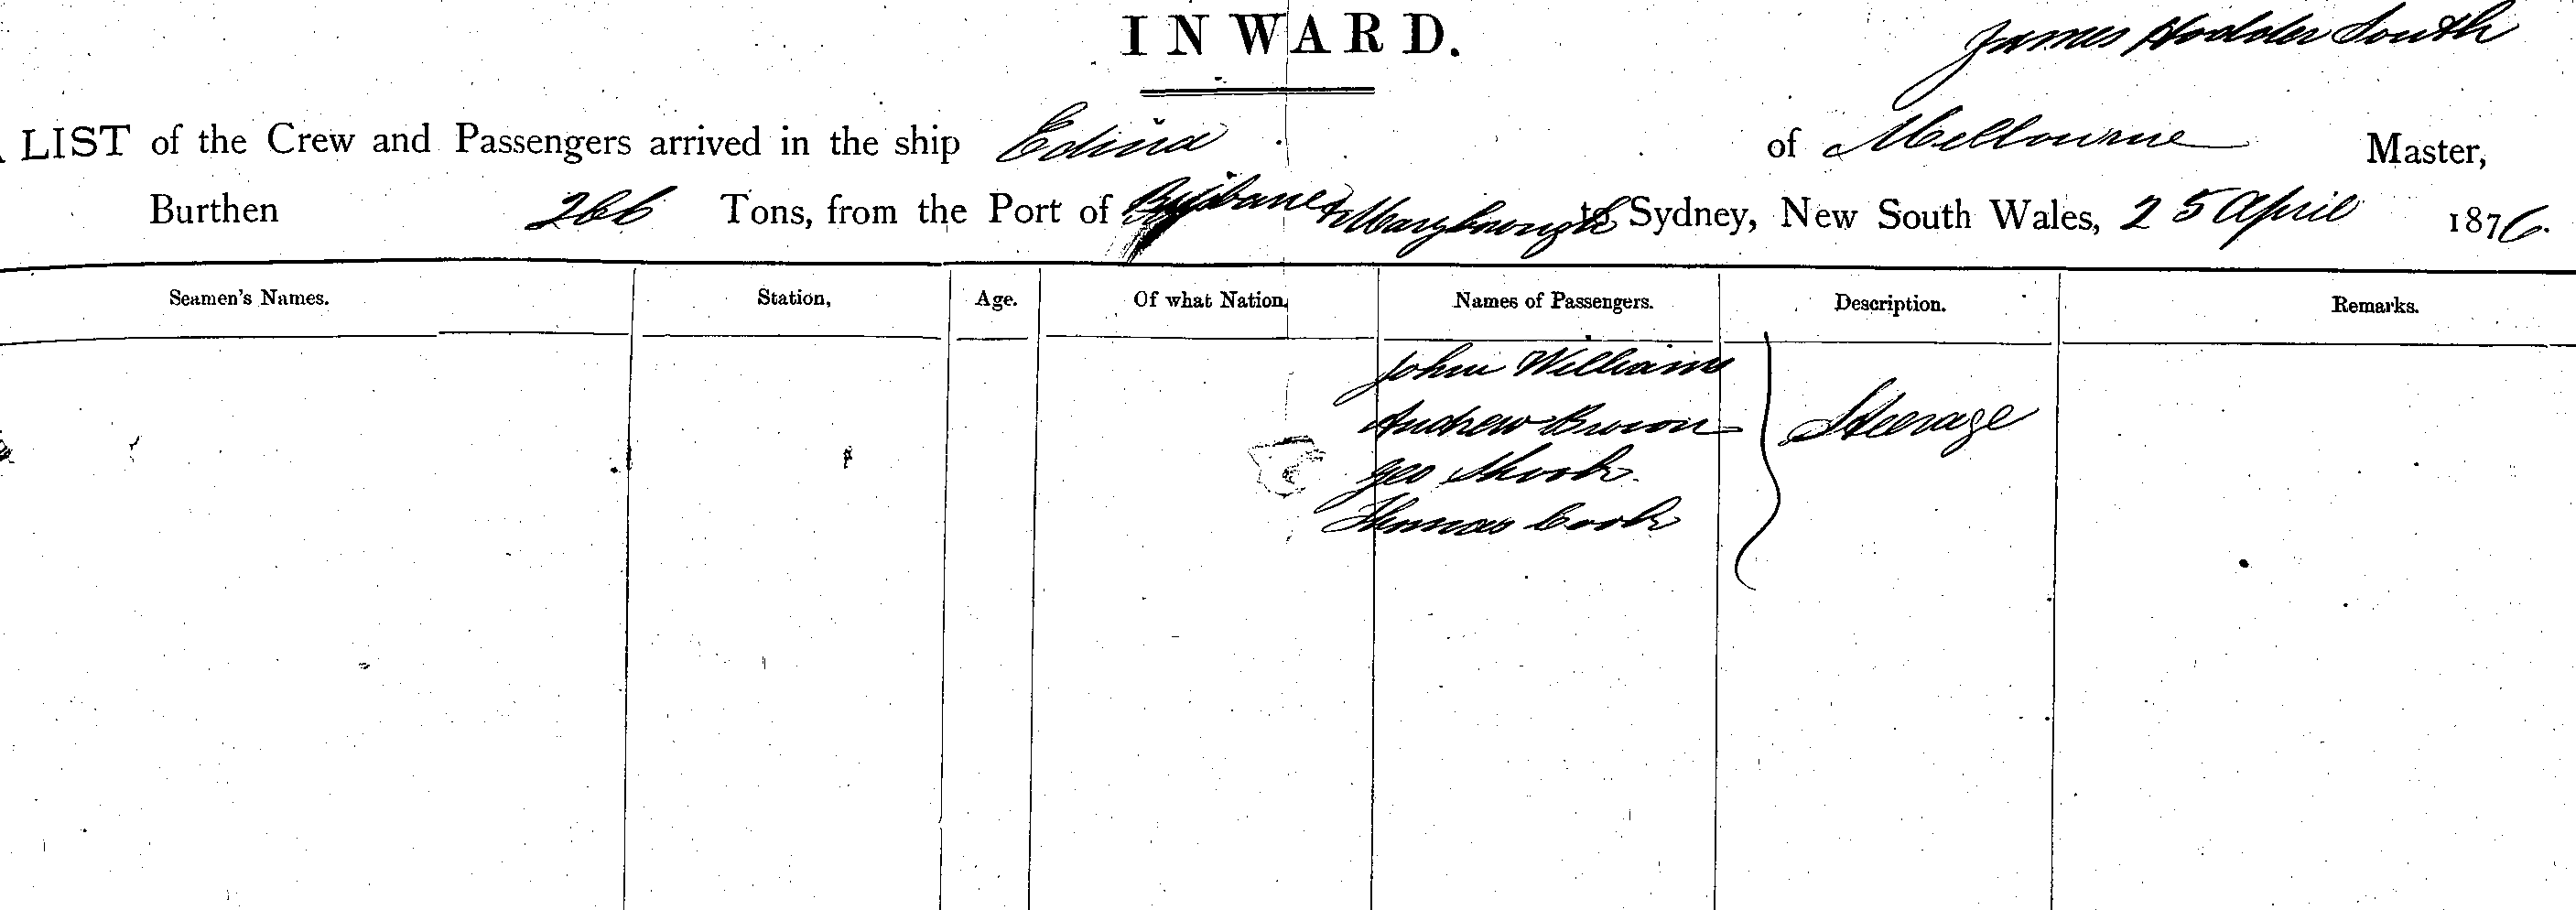 INWARD.
James Hodder South
LIST of the Crew and Passengers arrived in the ship Edina of Melbourne Master,
Burthen 266 Tons, from the Port of Brisbane & Maryborough to Sydney, New South Wales, 25 April 1876.
Seamen's Names. Station, Age. Of what Nation, Names of Passengers. Description. Remarks.
John Williams
Andrew
Steerage
Geo
Thomas Cook